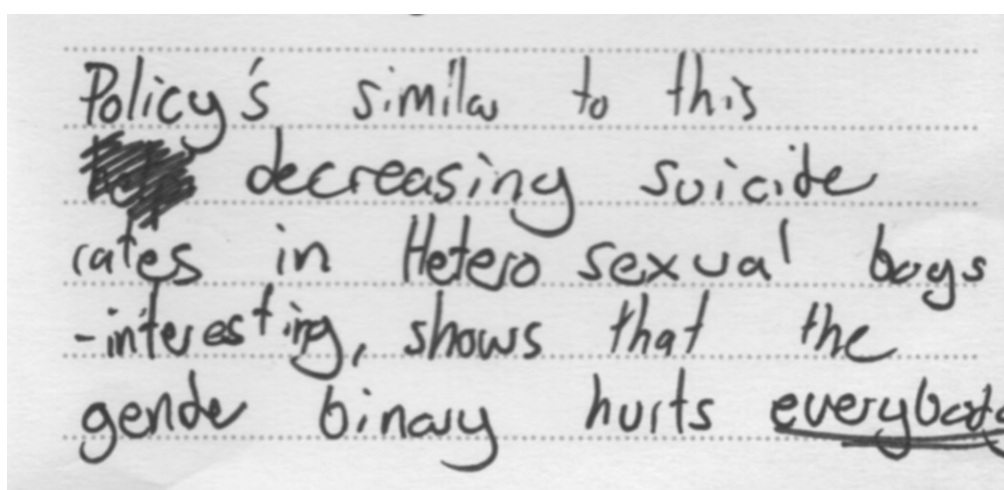 Policy's similar to this
decreasing suicide
rates in Hetero sexual boys
-interesting, shows that the
gender binary hurts everybody